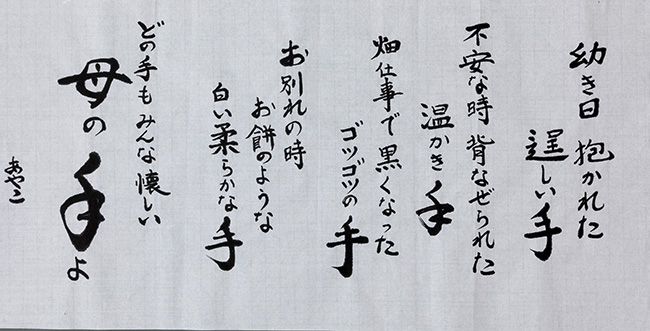 幼き日 抱かれた
逞しい手
不安な時 背なぜられた
温かき手
畑仕事で黒くなった
ゴツゴツの手
お別れの時
お餅のような
白い柔らかな手
どの手もみんな懐しい
母の手よ
あやこ